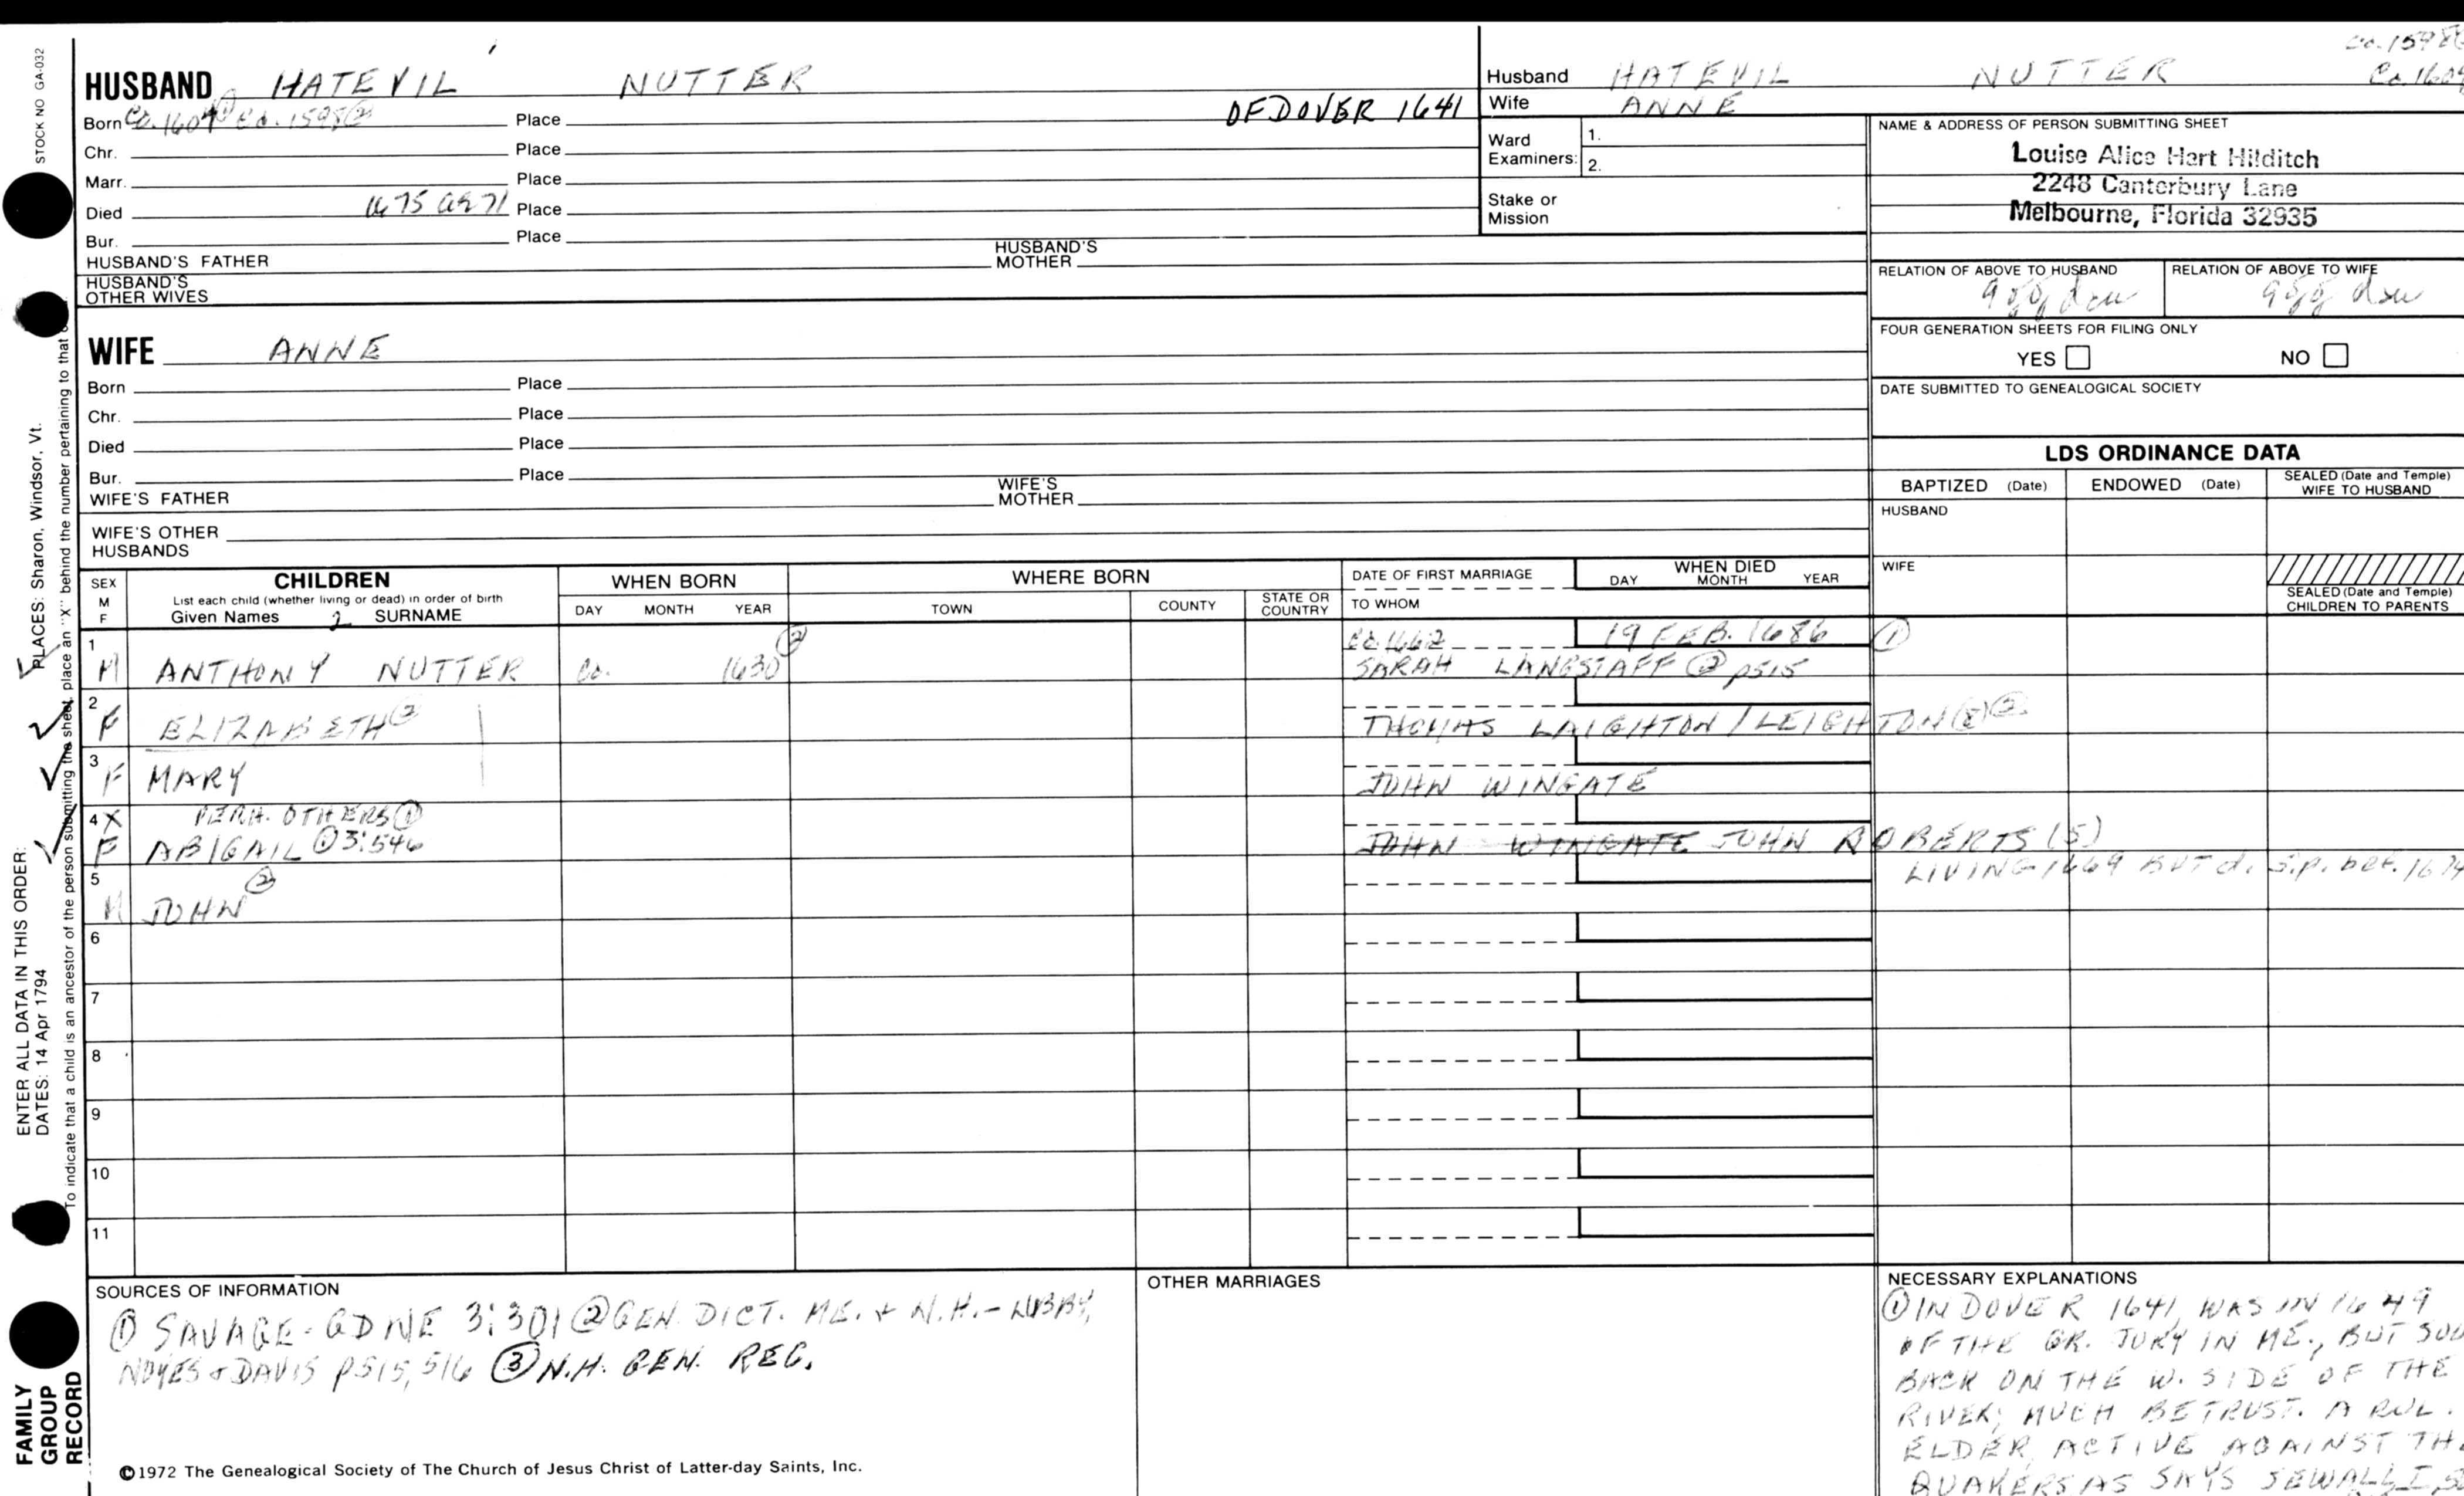 STOCK NO GA-032
HUSBAND HATEVIL NUTTER
Born Ca. 1604 ① Ca. 1598 ② Place OF DOVER 1641
Chr. Place
Marr. Place
Died 1675 aet 71 Place
Bur. Place
HUSBAND'S FATHER HUSBAND'S MOTHER
HUSBAND'S
OTHER WIVES
WIFE ANNE
Born Place
Chr. Place
Died Place
Bur. Place
WIFE'S FATHER WIFE'S MOTHER
WIFE'S OTHER
HUSBANDS
Ca. 1598
Husband HATEVIL NUTTER Ca. 1604
Wife ANNE
Ward
Examiners: 1.
2.
Stake or
Mission
NAME & ADDRESS OF PERSON SUBMITTING SHEET
Louise Alice Hart Hilditch
2248 Canterbury Lane
Melbourne, Florida 32935
RELATION OF ABOVE TO HUSBAND RELATION OF ABOVE TO WIFE
FOUR GENERATION SHEETS FOR FILING ONLY
YES NO
DATE SUBMITTED TO GENEALOGICAL SOCIETY
LDS ORDINANCE DATA
BAPTIZED (Date) ENDOWED (Date) SEALED (Date and Temple)
WIFE TO HUSBAND
HUSBAND
WIFE
SEALED (Date and Temple)
CHILDREN TO PARENTS
SEX
M
F
CHILDREN
List each child (whether living or dead) in order of birth
Given Names 2 SURNAME
WHEN BORN
DAY MONTH YEAR
WHERE BORN
TOWN COUNTY STATE OR COUNTRY
DATE OF FIRST MARRIAGE
TO WHOM
WHEN DIED
DAY MONTH YEAR
1 Ca 1662 19 FEB. 1686 ①
M ANTHONY NUTTER Ca. 1630 ② SARAH LANGSTAFF ② p515
2
F ELIZABETH ② THOMAS LAIGHTON / LEIGHTON (E) ②
3
F MARY JOHN WINGATE
4 X PERH. OTHERS ①
F ABIGAIL ① 3:546 JOHN WINGATE JOHN ROBERTS (S)
5 LIVING 1669 BUT d. s.p. bef. 1674
M JOHN ②
6
7
8
9
10
11
SOURCES OF INFORMATION
① SAVAGE - GDNE 3:301 ② GEN. DICT. ME. + N.H. - LIBBY,
NOYES + DAVIS p515, 516 ③ N.H. GEN. REC.
OTHER MARRIAGES
NECESSARY EXPLANATIONS
① IN DOVER 1641, WAS IN 1649
OF THE GR. JURY IN ME., BUT
BACK ON THE W. SIDE OF THE
RIVER; MUCH BETRUST. A RUL.
ELDER, ACTIVE AGAINST THE
QUAKERS AS SAYS SEWALL I,
©1972 The Genealogical Society of The Church of Jesus Christ of Latter-day Saints, Inc.
FAMILY
GROUP
RECORD
ENTER ALL DATA IN THIS ORDER:
DATES: 14 Apr 1794 PLACES: Sharon, Windsor, Vt.
To indicate that a child is an ancestor of the person submitting the sheet, place an "X" behind the number pertaining to that